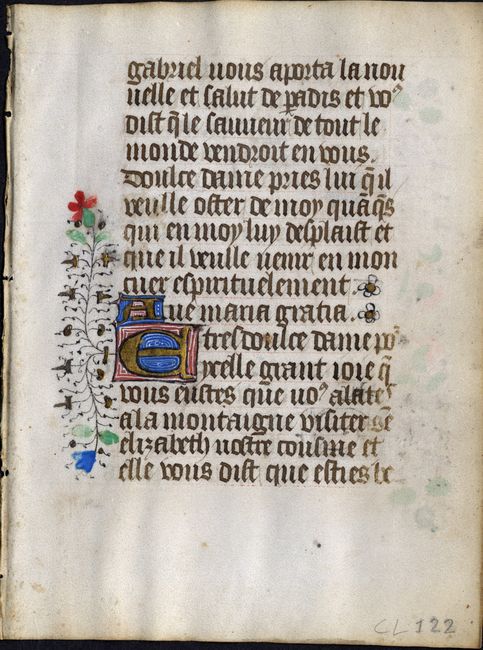 gabriel uous aporta la nou
uelle et salut de padis et voꝰ
dist q̄ le sauueur de tout le
monde vendroit en vous.
Doulce dame pries lui q̄ il
veulle oster de moy quāq̄s
qui en moy luy desplaist et
que il veulle uenir en mon
cuer espirituelement.
Aue maria gratia.
E tresdoulce dame poꝰ
ycelle grant ioie q̄
vous eustes que uoꝰ alates
a la montaigne visiter sē
elizabeth uostre cousine et
elle vous dist que esties be
CL 122